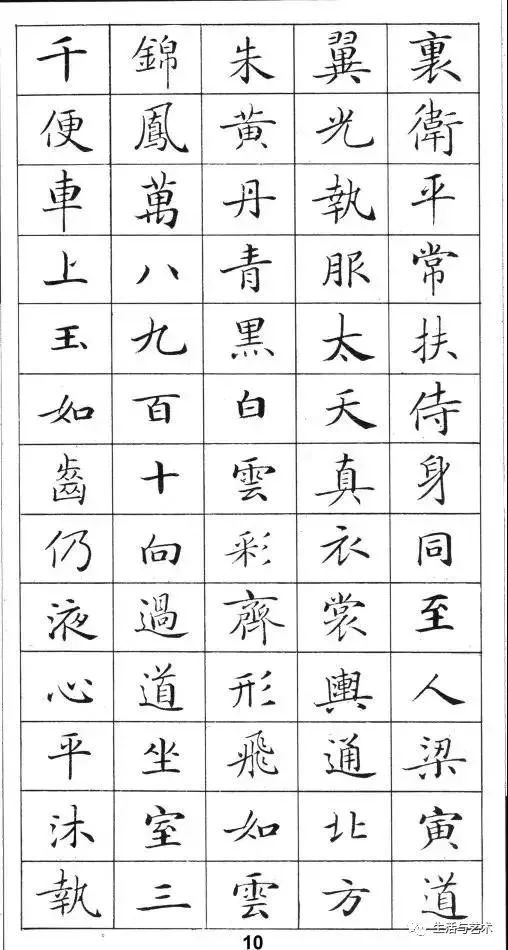 裏衛平常扶侍身同至人梁寅道
翼光執服太天真衣裳輿通北方
朱黄丹青黒白雲彩齊形飛如雲
錦鳳萬八九百十向過道坐室三
千便車上玉如齒仍液心平沐執
10
生活与艺术